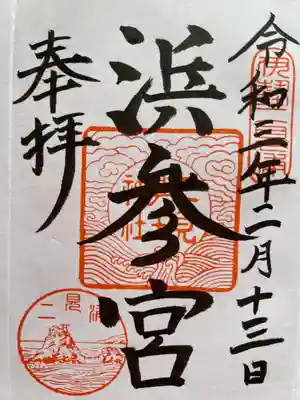 令和三年二月十三日
浜参宮
奉拝
二見
神社
二見浦